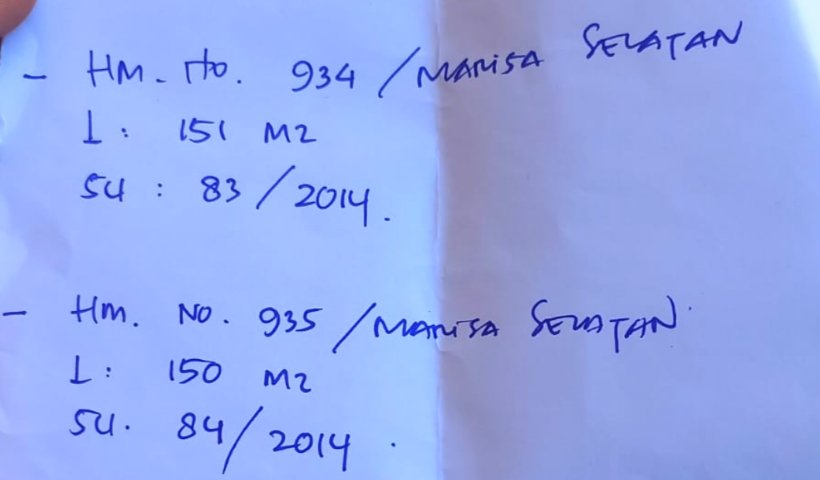 - HM. No. 934 / MARISA SELATAN
L : 151 M2
SU : 83 / 2014.
- HM. NO. 935 / MARISA SELATAN
L : 150 M2
SU. 84 / 2014.